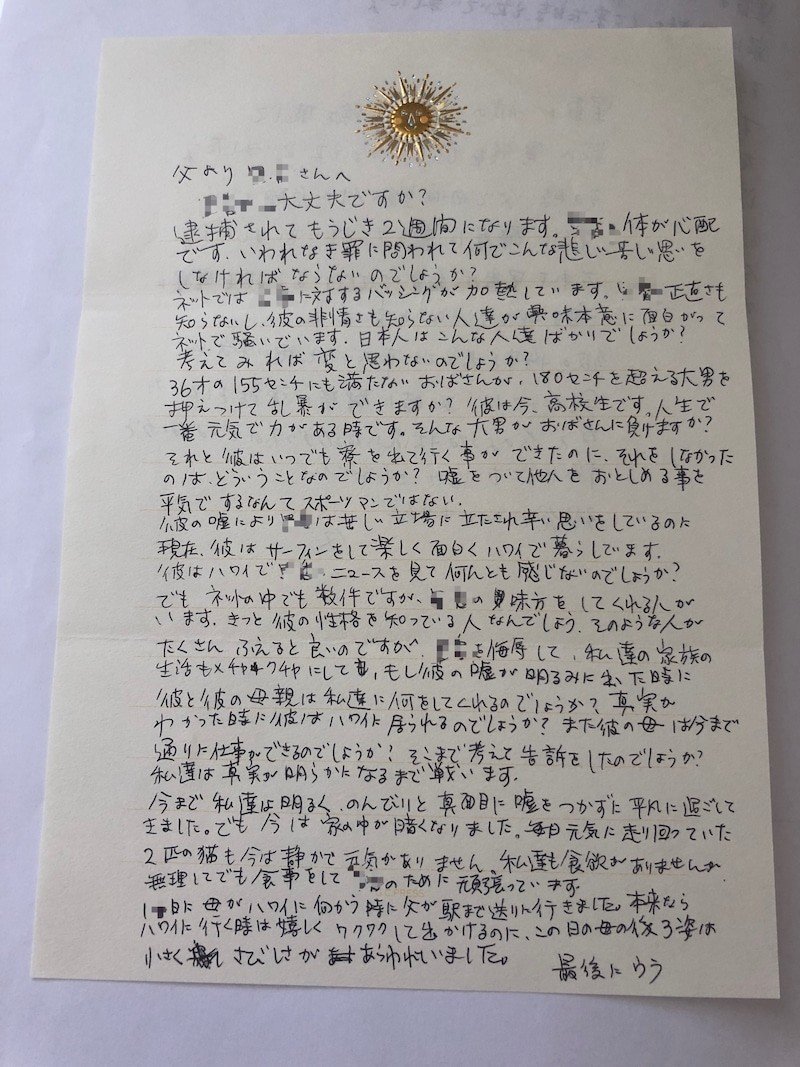 父より さんへ
大丈夫ですか?
逮捕されてもうじき2週間になります。体が心配
です。いわれなき罪に問われて何でこんな悲しい苦しい思いを
しなければならないのでしょうか?
ネットでは に対するバッシングが加熱しています。正直さも
知らないし、彼の非情さも知らない人達が興味本意に面白がって
ネットで騒いでいます。日本人はこんな人達ばかりでしょうか?
考えてみれば変と思わないのでしょうか?
36才の155センチにも満たないおばさんが、180センチを超える大男を
押えつけて乱暴ができますか?彼は今、高校生です。人生で
一番元気で力がある時です。そんな大男がおばさんに負けますか?
それと彼はいつでも寮を出て行く事ができたのに、それをしなかった
のは、どういうことなのでしょうか?嘘をついて他人をおとしめる事を
平気でするなんてスポーツマンではない。
彼の嘘により は苦しい立場に立たされ辛い思いをしているのに
現在、彼はサーフィンをして楽しく面白くハワイで暮らしています。
彼はハワイで ニュースを見て何んとも感じないのでしょうか?
でもネットの中でも数件ですが、の味方をしてくれる人が
います。きっと彼の性格を知っている人なんでしょう。そのような人が
たくさんふえると良いのですが、を侮辱して、私達の家族の
生活もメチャクチャにして、もし彼の嘘が明るみに出た時に
彼と彼の母親は私達に何をしてくれるのでしょうか?真実が
わかった時に彼はハワイに居られるのでしょうか?また彼の母は今まで
通りに仕事ができるのでしょうか?そこまで考えて告訴をしたのでしょうか?
私達は真実が明らかになるまで戦います。
今まで私達は明るく、のんびりと真面目に嘘をつかずに平凡に過ごして
きました。でも今は家の中が暗くなりました。毎日元気に走り回っていた
2匹の猫も今は静かで元気がありません。私達も食欲がありませんが
無理してでも食事をして のために頑張っています。
1 日に母がハワイに向かう時に父が駅まで送りに行きました。本来なら
ハワイに行く時は嬉しくワクワクして出かけるのに、この日の母の後ろ姿は
小さく さびしさが あらわれいました。
最後にウラ